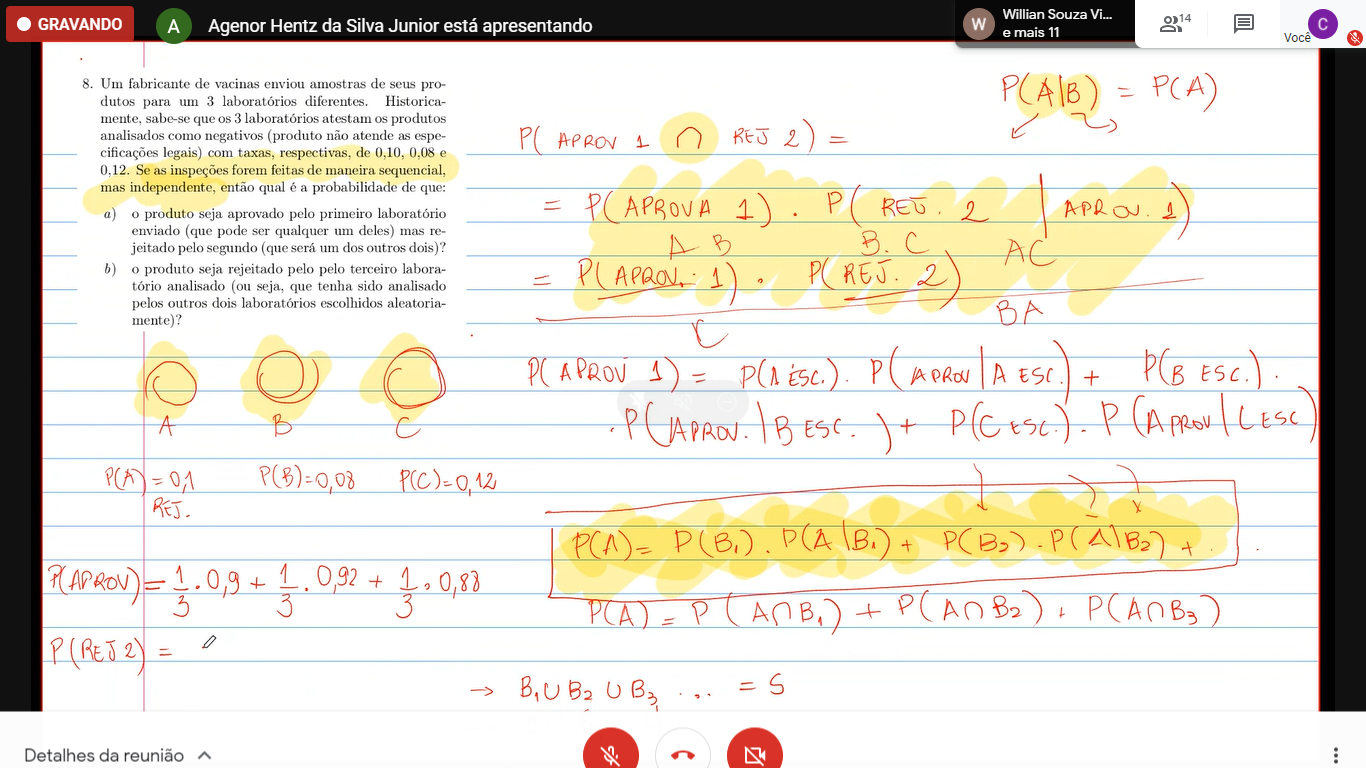 GRAVANDO
A
Agenor Hentz da Silva Junior está apresentando
W
Willian Souza Vi...
e mais 11
14
Você
C
8. Um fabricante de vacinas enviou amostras de seus pro-
dutos para um 3 laboratórios diferentes. Historica-
mente, sabe-se que os 3 laboratórios atestam os produtos
analisados como negativos (produto não atende as espe-
cificações legais) com taxas, respectivas, de 0,10, 0,08 e
0,12. Se as inspeções forem feitas de maneira sequencial,
mas independente, então qual é a probabilidade de que:
a) o produto seja aprovado pelo primeiro laboratório
enviado (que pode ser qualquer um deles) mas re-
jeitado pelo segundo (que será um dos outros dois)?
b) o produto seja rejeitado pelo pelo terceiro labora-
tório analisado (ou seja, que tenha sido analisado
pelos outros dois laboratórios escolhidos aleatoria-
mente)?
A B C
P(A)=0,1 P(B)=0,08 P(C)=0,12
REJ.
P(APROV)= 1/3 . 0,9 + 1/3 . 0,92 + 1/3 . 0,88
P(REJ 2) =
P(A|B) = P(A)
P( APROV 1 ∩ REJ 2) =
= P(APROVA 1) . P( REJ. 2 | APROV. 1)
A B B. C AC
= P(APROV. 1) . P(REJ. 2)
C BA
P(APROV 1) = P(A ESC.). P(APROV|A ESC.) + P(B ESC.) .
. P(APROV.|B ESC.) + P(C ESC.). P(APROV|C ESC)
P(A)= P(B₁) . P(A|B₁) + P(B₂) . P(A|B₂) + .
P(A) = P(A∩B₁) + P(A∩B₂) + P(A∩B₃)
→ B₁∪B₂∪B₃ ... = S
Detalhes da reunião